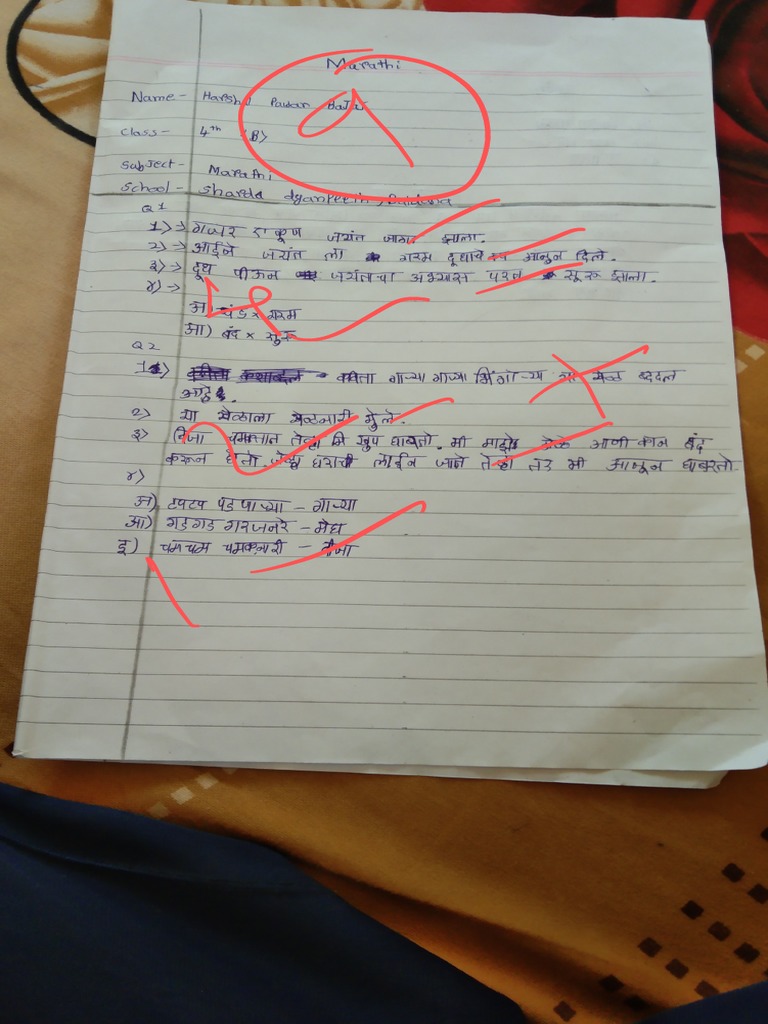 Marathi
Name - Harshu Pawan
९
Class - 4th (B)
Subject - Marathi
School - Sharda dyanpeeth,
Q1
1) → गजर ऐकूण जयंत जागा झाला.
2) → आईने जयंत ला गरम दूधाचे आनुन दिले.
३) → दूध पीऊन जयंतचा अभ्यास परत सूरू झाला.
४) →
अ) थंड × गरम
आ) बंद × सुरु
Q2
1) कवीता गाऱ्या गाऱ्या भिंगोऱ्या या खेळ बददल
आहे.
२) या खेळाला खेळनारी मुले.
३) विजा चमकतात तेव्हा मि खुप घाबरतो. मी माझे डोळे आणी कान बंद
करून घेतो. जेव्हा घराची लाईन जाते तेव्हा तर मी आजून घाबरतो
४)
अ) टपटप पडणाऱ्या - गाऱ्या
आ) गडगड गरजनरे - मेघ
इ) चमचम चमकनारी - वीजा